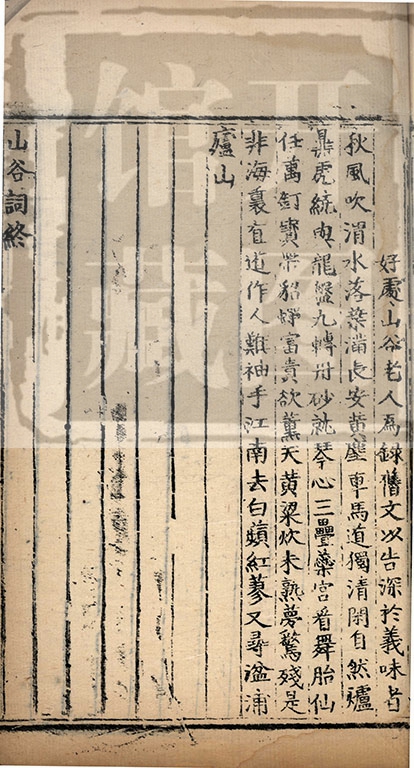 好處山谷老人為錄舊文以告深於義味者
秋風吹渭水落葉滿長安黃塵車馬道獨清閑自然爐
鼎虎繞與龍盤九轉丹砂就琴心三疊蘂宮看舞胎仙
任萬釘寳帶貂蟬富貴欲薰天黄粱炊未熟夢驚殘是
非海裏直道作人難袖手江南去白蘋紅蓼又尋湓浦
廬山
山谷詞終
館藏